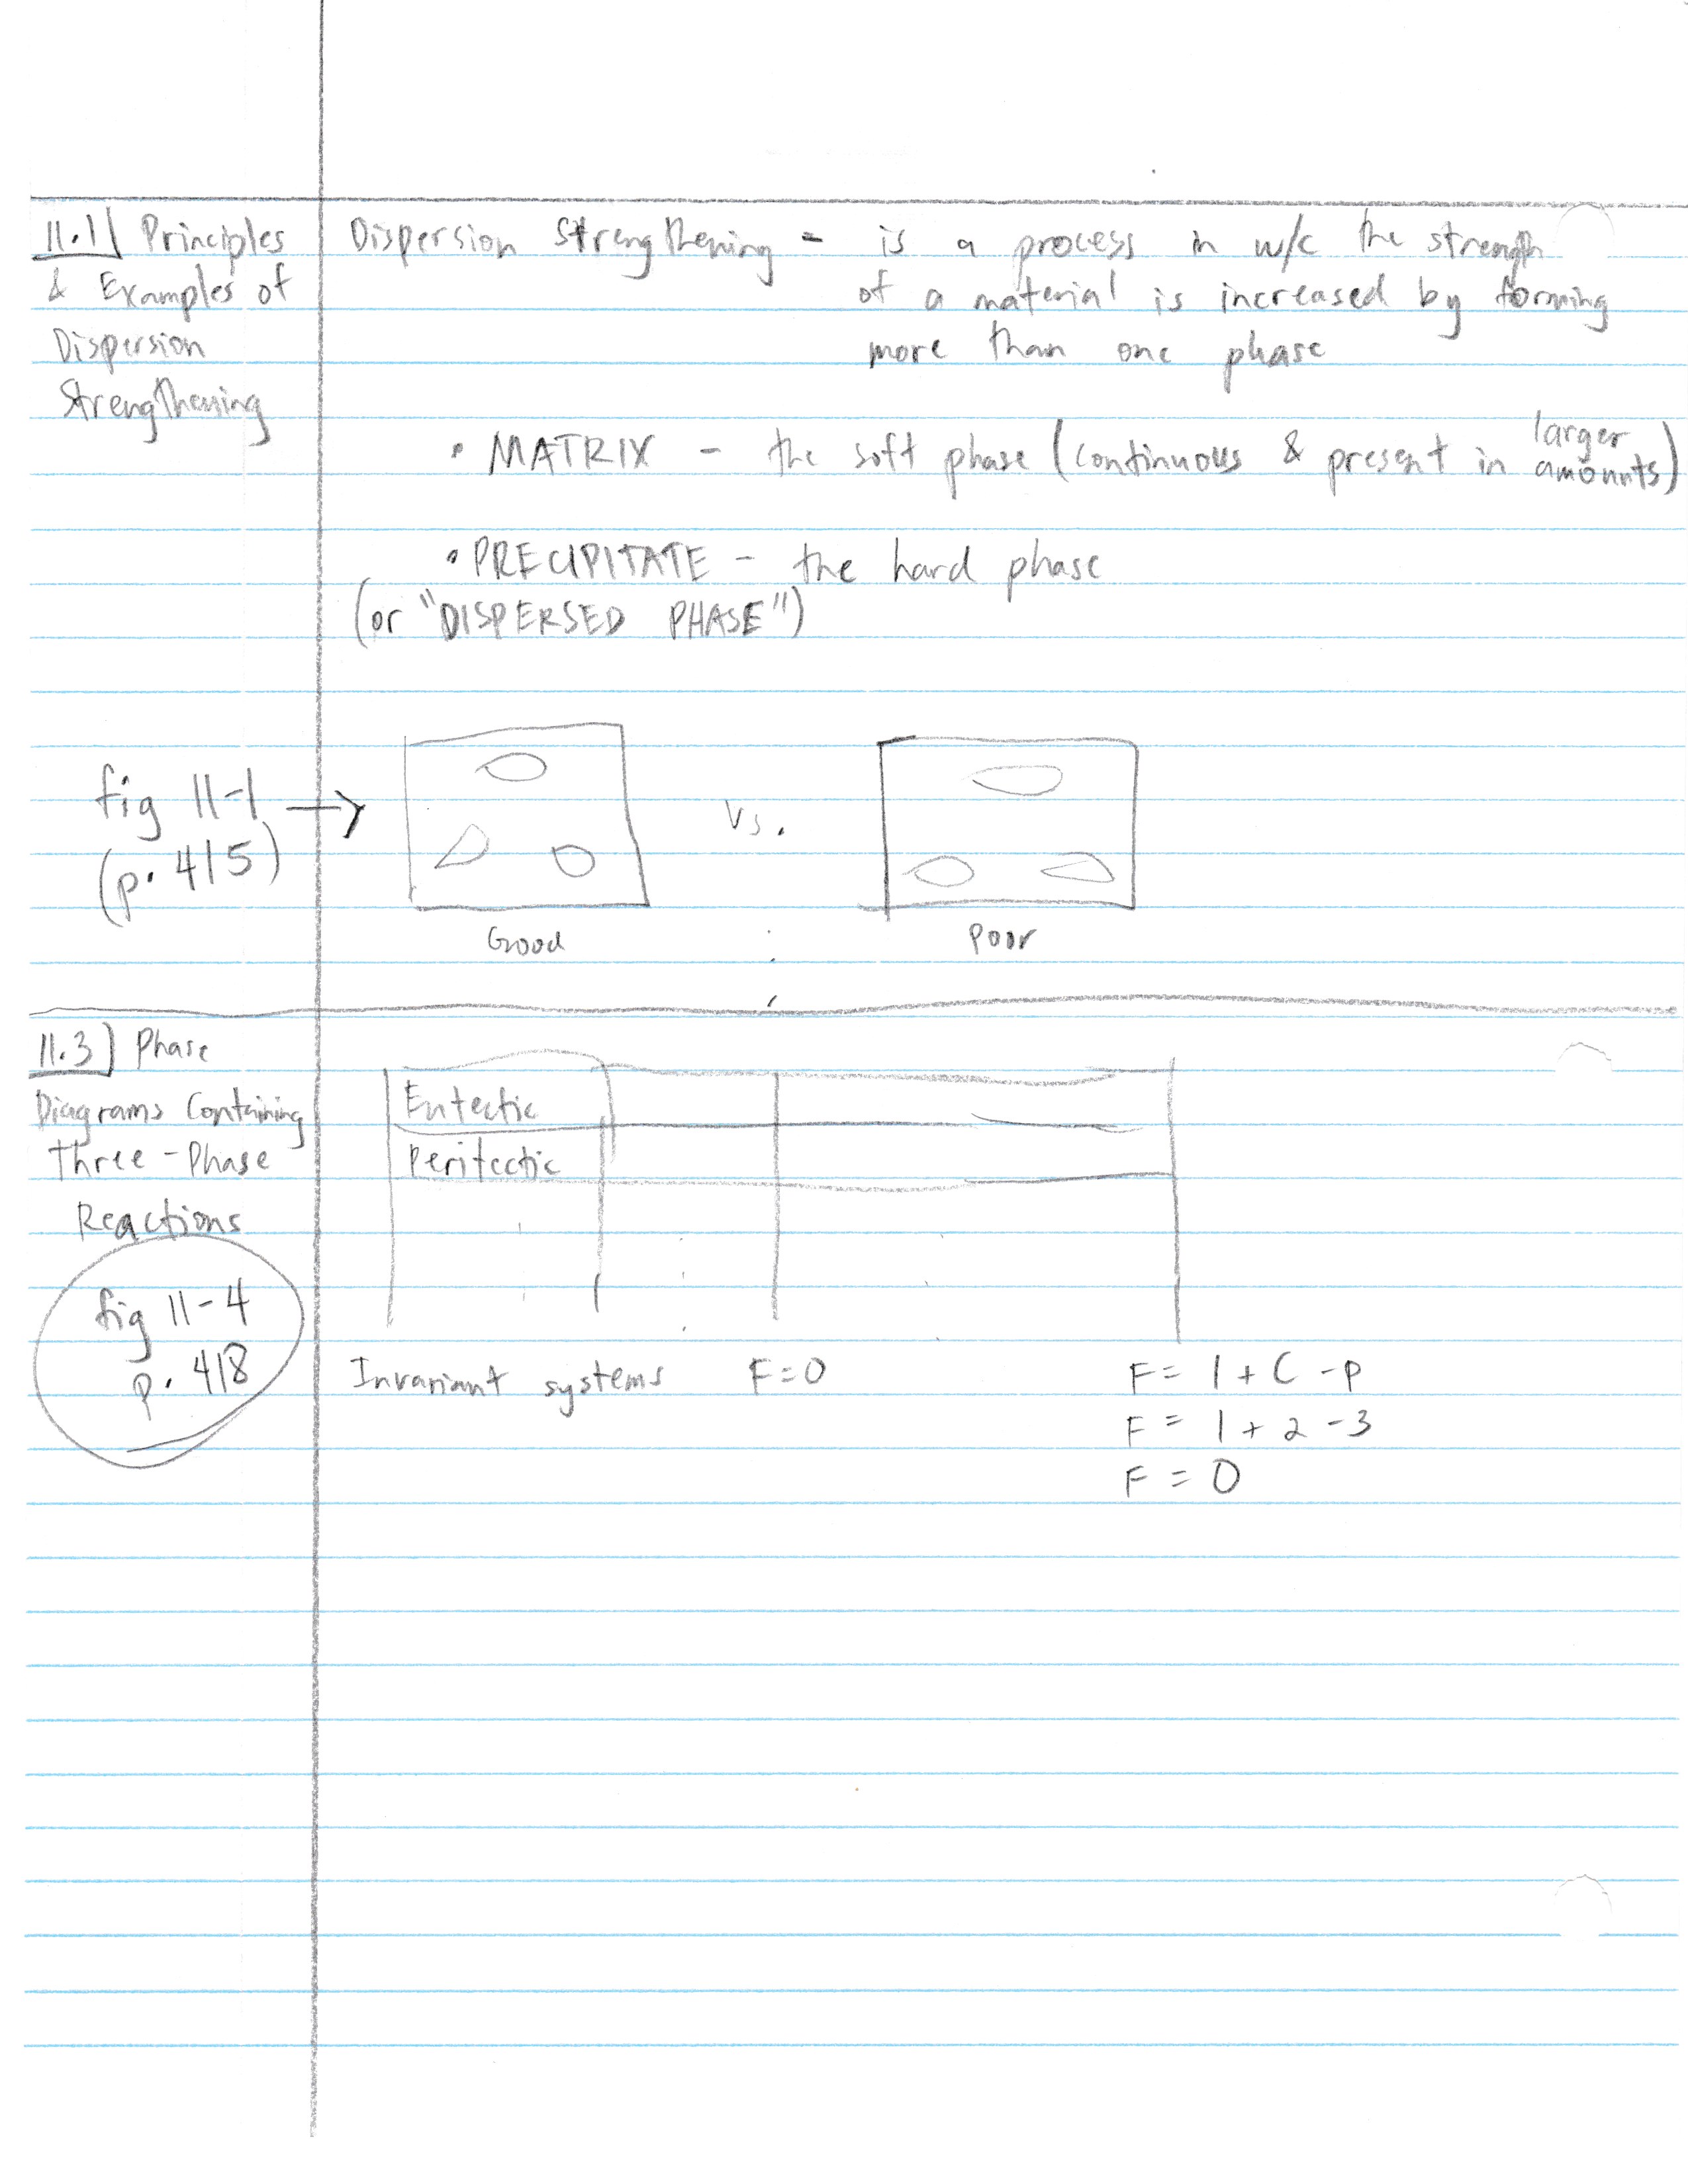 11.1 Principles
& Examples of
Dispersion
Strengthening
Dispersion Strengthening - is a process in w/c the strength
of a material is increased by forming
more than one phase
• MATRIX - the soft phase (continuous & present in larger
amounts)
• PRECIPITATE - the hard phase
(or "DISPERSED PHASE")
fig 11-1 →
(p. 415)
Vs.
Good
Poor
11.3 Phase
Diagrams Containing
Three-Phase
Reactions
fig 11-4
p. 418
Eutectic
Peritectic
Invariant systems F=0
F = 1 + C - P
F = 1 + 2 - 3
F = 0